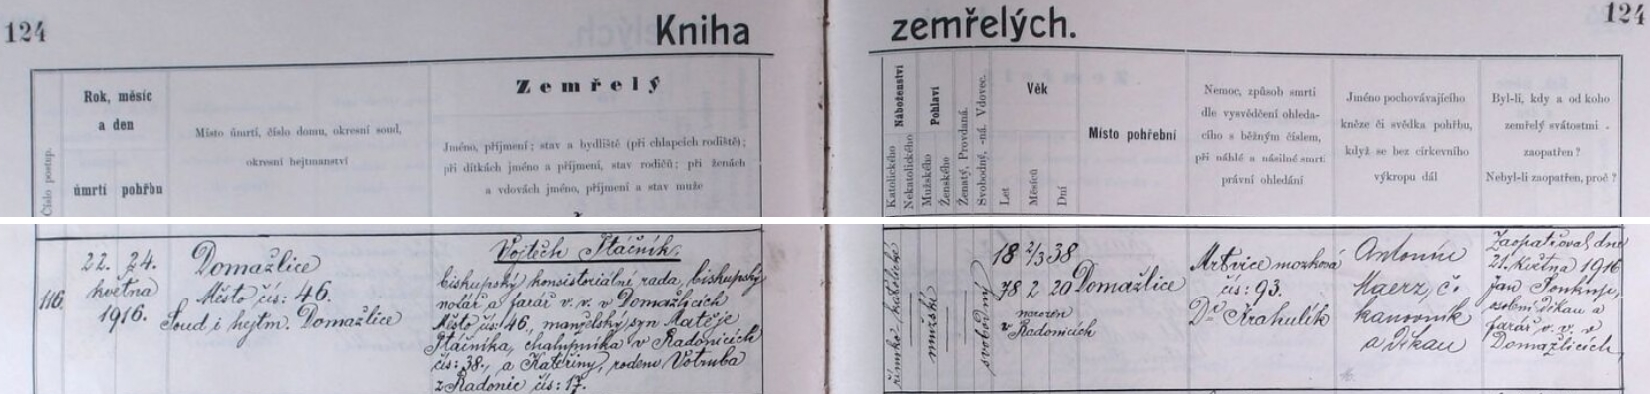 124
Kniha zemřelých.
124
Číslo postup.
Rok, měsíc
a den
úmrtí pohřbu
Místo úmrtí, číslo domu, okresní soud,
okresní hejtmanství
Zemřelý
Jméno, příjmení; stav a bydliště (při chlapcích rodiště);
při dítkách jméno a příjmení, stav rodičů; při ženách
a vdovách jméno, příjmení a stav muže
Náboženství
Katolického
Nekatolického
Pohlaví
Mužského
Ženského
Ženatý, Provdaná.
Svobodný, -ná. Vdovec.
Věk
Let
Měsíců
Dní
Místo pohřební
Nemoc, způsob smrti
dle vysvědčení ohleda-
cího s běžným číslem,
při náhlé a násilné smrti
právní ohledání
Jméno pochovávajícího
kněze či svědka pohřbu,
když se bez církevního
výkropu dál
Byl-li, kdy a od koho
zemřelý svátostmi
zaopatřen?
Nebyl-li zaopatřen, proč?
116.
22. 24.
května
1916.
Domažlice
Město čís: 46.
Soud i hejtm. Domažlice
Vojtěch Ptáčník,
biskupský konsistoriální rada, biskupský
notář a farář v. v. v Domažlicích
Město čís: 46, manželský syn Matěje
Ptáčníka, chalupníka v Radonicích
čís: 38, a Kateřiny, rodem Votruba
z Radonic čís: 17.
římsko-katolické
mužské
svobodný
18 2/3 38
78 2 20
narozen
v Radonicích
Domažlice
Mrtvice mozková
čís: 93.
Dr Krahulík
Antonín
Maerz, č.
kanovník
a děkan
Zaopatřoval dne
21. května 1916
Jan
osobní děkan a
farář v. v. v
Domažlicích